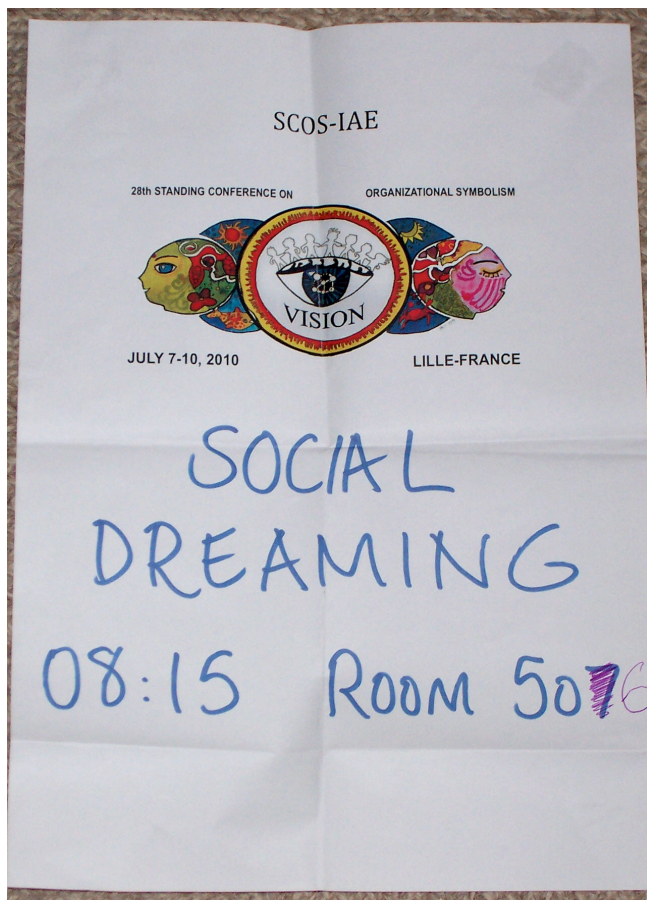 SCOS-IAE
28th STANDING CONFERENCE ON ORGANIZATIONAL SYMBOLISM
VISION
JULY 7-10, 2010 LILLE-FRANCE
SOCIAL
DREAMING
08:15 ROOM 506